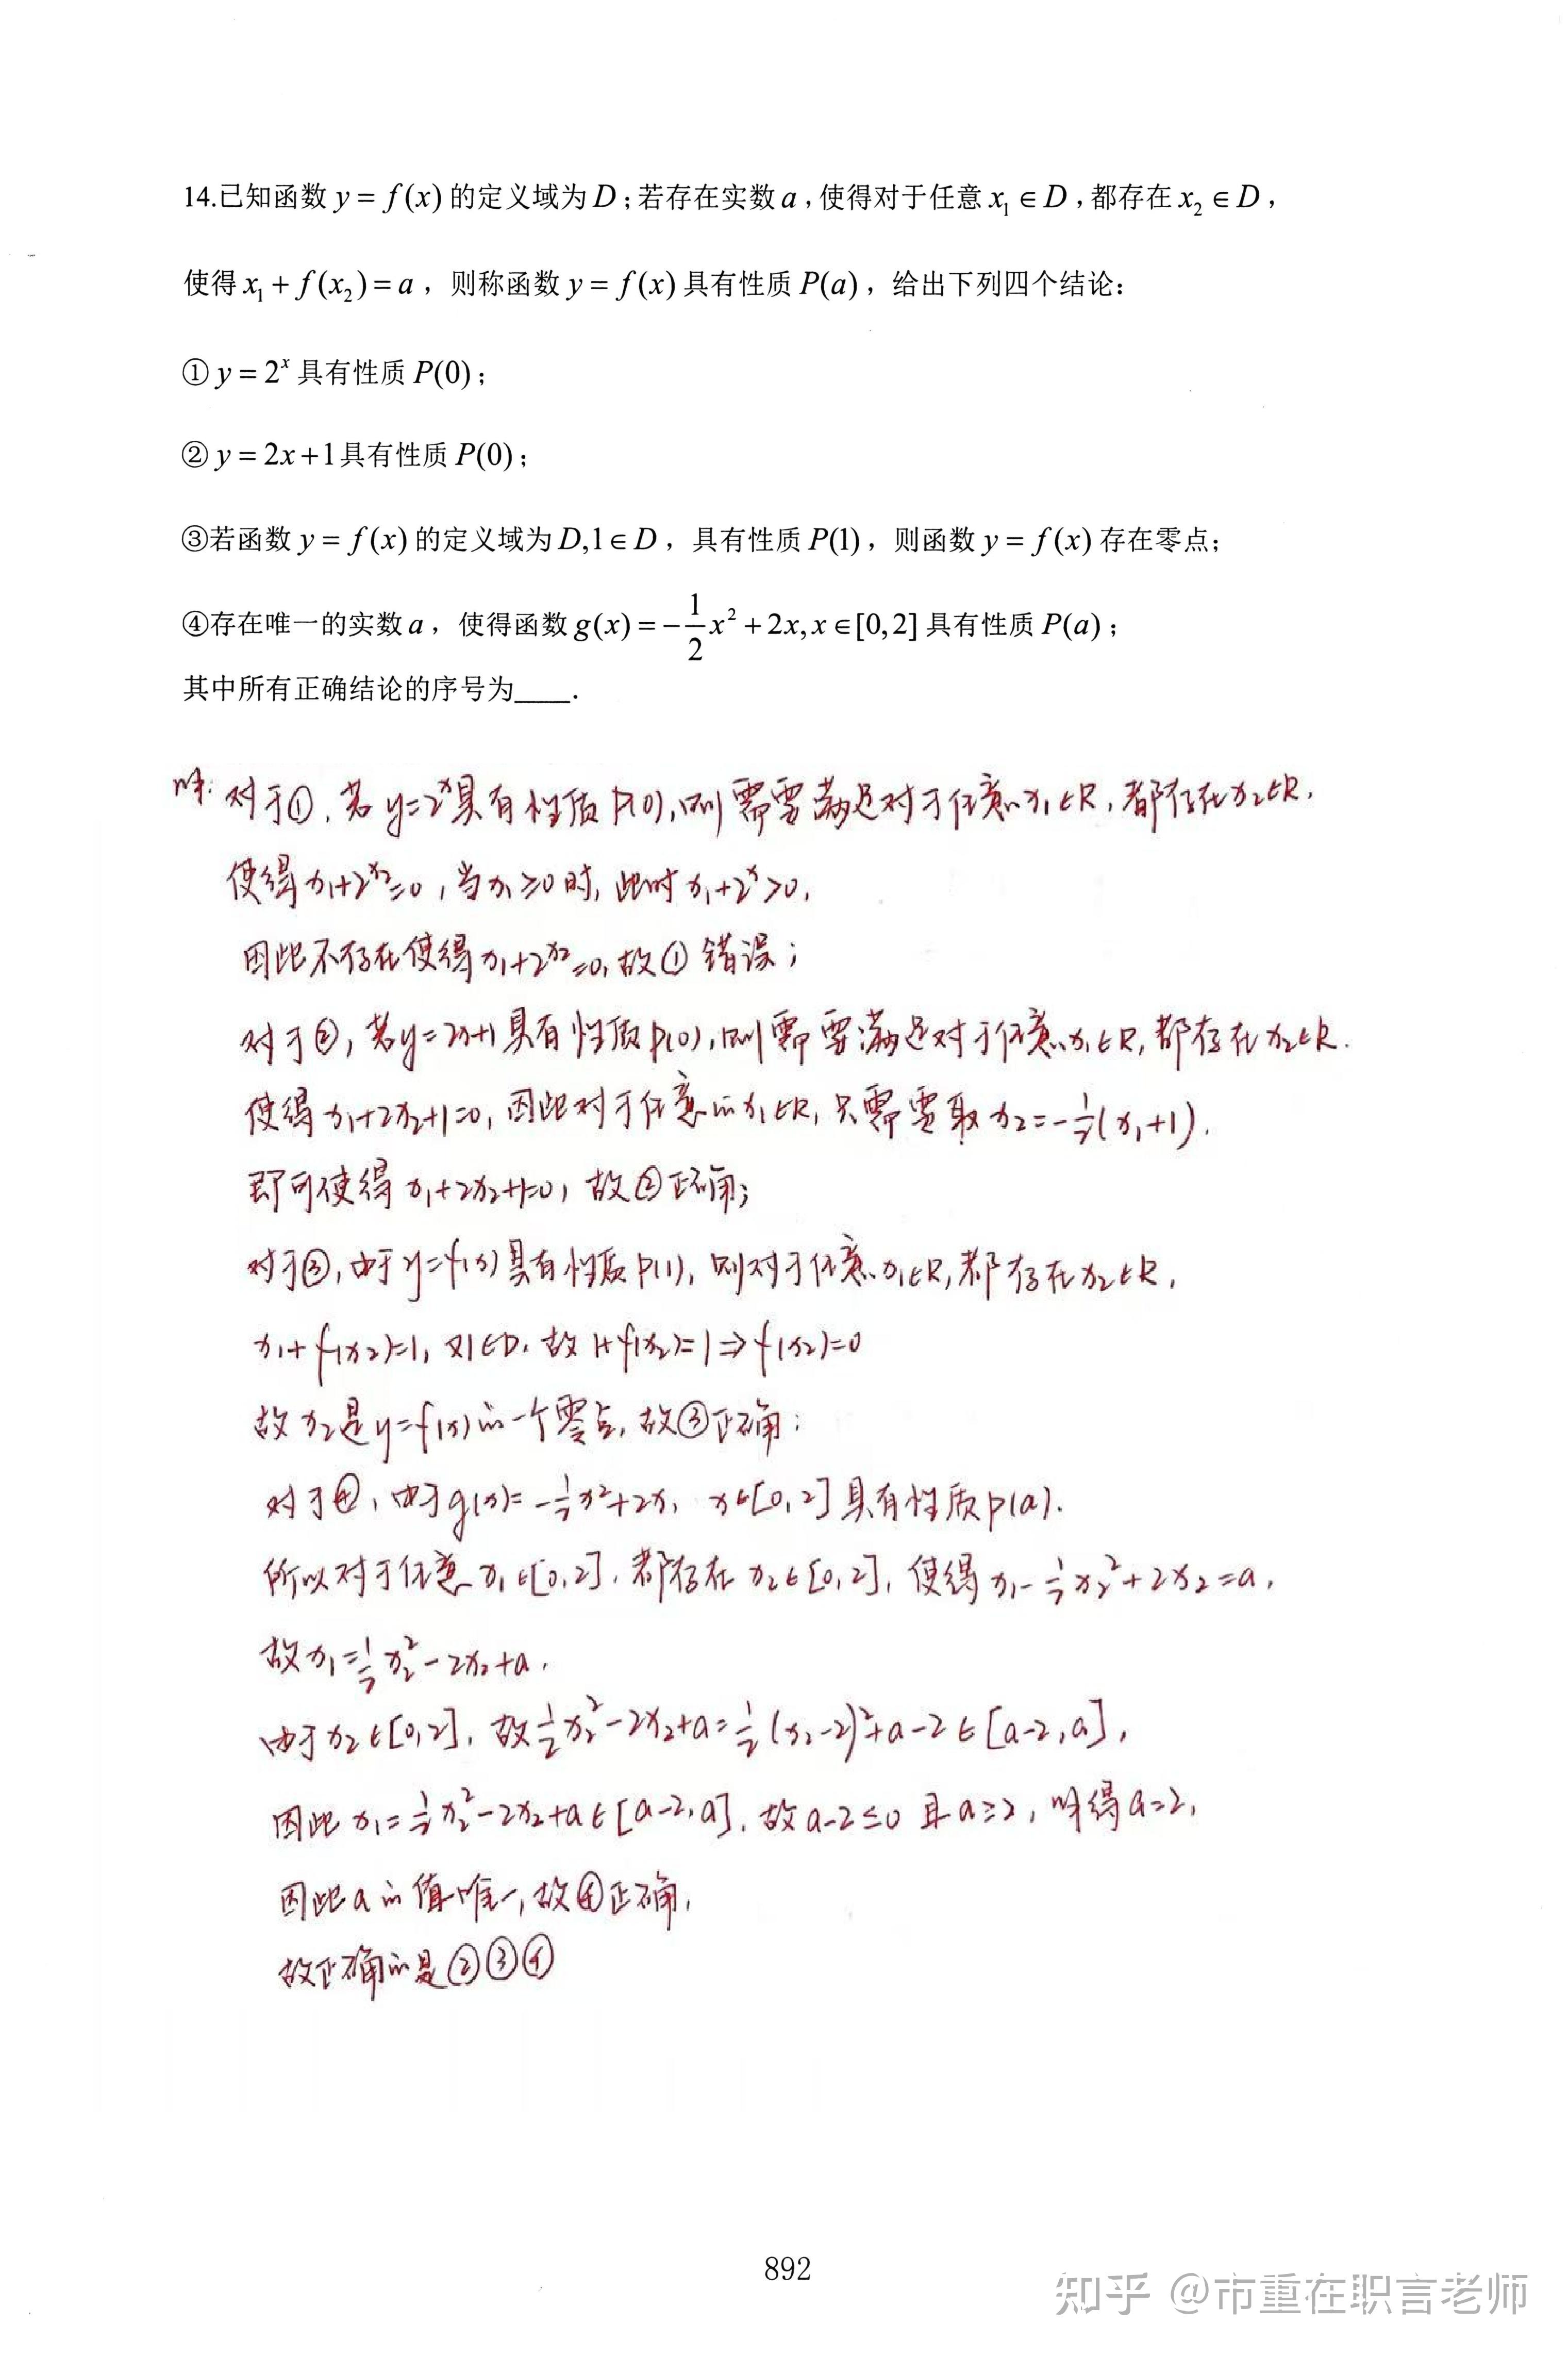 14.已知函数 y = f(x) 的定义域为 D ; 若存在实数 a , 使得对于任意 x₁ ∈ D , 都存在 x₂ ∈ D ,
使得 x₁ + f(x₂) = a ，则称函数 y = f(x) 具有性质 P(a) ，给出下列四个结论：
① y = 2ˣ 具有性质 P(0) ;
② y = 2x +1具有性质 P(0) ;
③若函数 y = f(x) 的定义域为 D,1 ∈ D ，具有性质 P(1) ，则函数 y = f(x) 存在零点;
④存在唯一的实数 a ，使得函数 g(x) = -1/2 x² + 2x, x ∈ [0, 2] 具有性质 P(a) ;
其中所有正确结论的序号为____.
解: 对于①, 若 y=2ˣ具有性质 P(0), 则需要满足对于任意的x₁∈R, 都存在x₂∈R,
使得x₁+2^x₂=0, 当x₁≥0时, 此时 x₁+2ˣ>0,
因此不存在使得x₁+2^x₂=0, 故① 错误;
对于②, 若y=2x+1具有性质P(0), 则需要满足对于任意x₁∈R, 都存在x₂∈R.
使得x₁+2x₂+1=0, 因此对于任意的x₁∈R, 只需要取x₂=-1/2(x₁+1).
即可使得 x₁+2x₂+1=0, 故②正确;
对于③, 由于y=f(x)具有性质P(1), 则对于任意x₁∈R, 都存在x₂∈R,
x₁+f(x₂)=1, 又1∈D, 故1+f(x₂)=1⇒f(x₂)=0
故x₂是y=f(x)的一个零点, 故③正确;
对于④, 由于g(x)=-1/2x²+2x, x∈[0,2]具有性质P(a).
所以对于任意x₁∈[0,2], 都存在x₂∈[0,2], 使得x₁-1/2x₂²+2x₂=a,
故x₁=1/2x₂²-2x₂+a,
由于x₂∈[0,2], 故1/2x₂²-2x₂+a=1/2(x₂-2)²+a-2∈[a-2,a],
因此x₁=1/2x₂²-2x₂+a∈[a-2,a], 故a-2≤0且a≥2, 解得a=2,
因此a的值唯一, 故④正确,
故正确的是②③④
892
知乎 @市重在职言老师